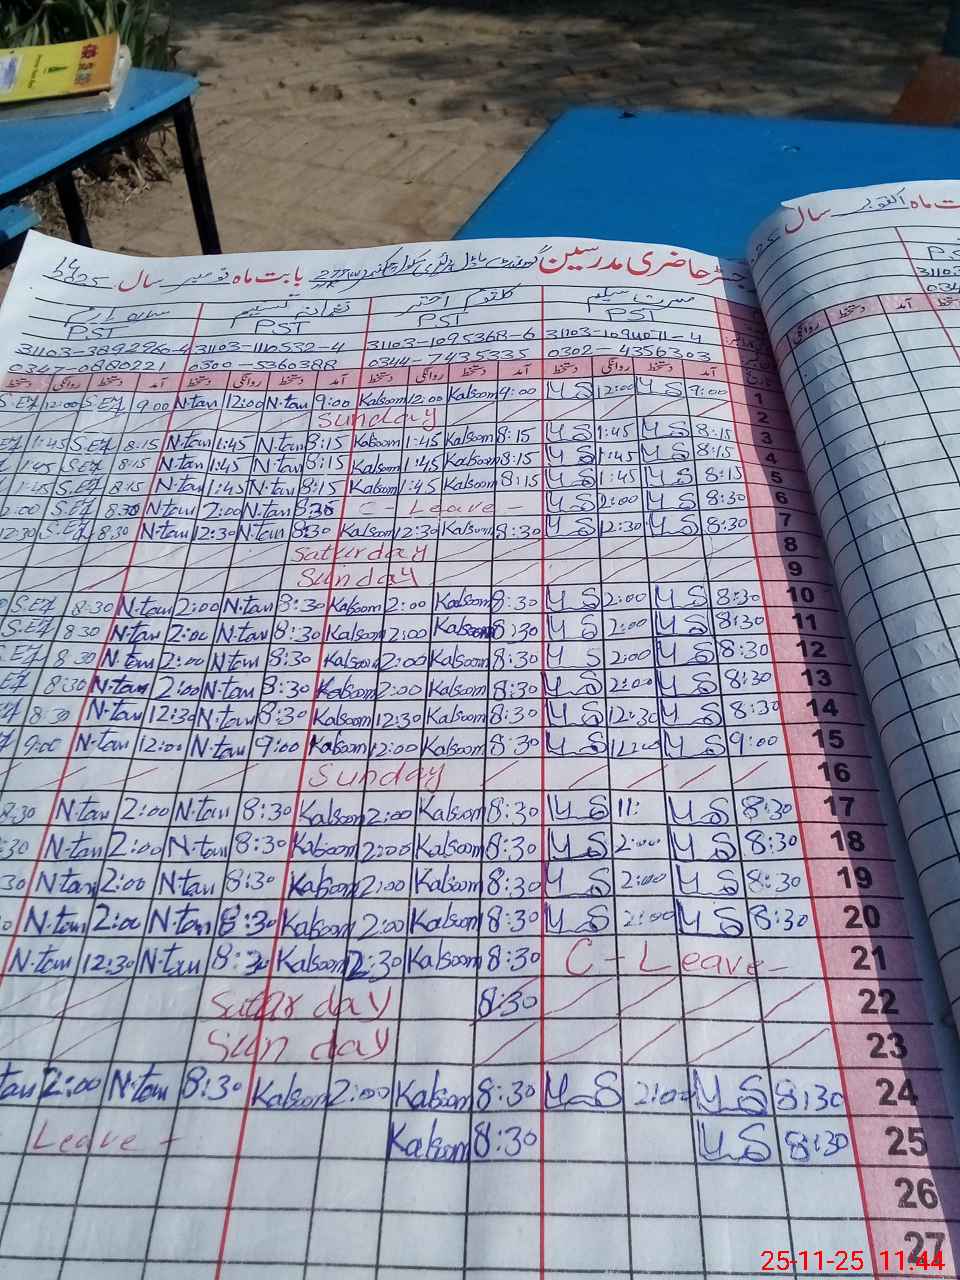 رجسٹر حاضری مدرسین گورنمنٹ ماڈل پرائمری سکول بابت ماہ نومبر سال 2025
بابت ماہ اکتوبر سال
مسرت سلیم کلثوم اختر
PST PST PST PST
31103-3892960-4 31103-1110532-4 31103-1095368-6 31103-1094071-4
0347-0880221 0300-5360388 0344-7435335 0302-4356303
دستخط روانگی دستخط آمد دستخط روانگی دستخط آمد دستخط روانگی دستخط آمد دستخط روانگی دستخط آمد
12:00 9:00 N-tan 12:00 N-tan 9:00 Kalsoom 12:00 Kalsoom 9:00 MS 12:00 MS 9:00 1
Sunday 2
1:45 8:15 N-tan 1:45 N-tan 8:15 Kalsoom 1:45 Kalsoom 8:15 MS 1:45 MS 8:15 3
1:45 8:15 N-tan 1:45 N-tan 8:15 Kalsoom 1:45 Kalsoom 8:15 MS 1:45 MS 8:15 4
1:45 8:15 N-tan 1:45 N-tan 8:15 Kalsoom 1:45 Kalsoom 8:15 MS 1:45 MS 8:15 5
2:00 8:30 N-tan 2:00 N-tan 8:30 C - Leave - MS 2:00 MS 8:30 6
12:30 8:30 N-tan 12:30 N-tan 8:30 Kalsoom 12:30 Kalsoom 8:30 MS 12:30 MS 8:30 7
Saturday 8
Sunday 9
8:30 N-tan 2:00 N-tan 8:30 Kalsoom 2:00 Kalsoom 8:30 MS 2:00 MS 8:30 10
8:30 N-tan 2:00 N-tan 8:30 Kalsoom 2:00 Kalsoom 8:30 MS 2:00 MS 8:30 11
8:30 N-tan 2:00 N-tan 8:30 Kalsoom 2:00 Kalsoom 8:30 MS 2:00 MS 8:30 12
8:30 N-tan 2:00 N-tan 8:30 Kalsoom 2:00 Kalsoom 8:30 MS 2:00 MS 8:30 13
8:30 N-tan 12:30 N-tan 8:30 Kalsoom 12:30 Kalsoom 8:30 MS 12:30 MS 8:30 14
9:00 N-tan 12:00 N-tan 9:00 Kalsoom 12:00 Kalsoom 8:30 MS 12:00 MS 9:00 15
Sunday 16
8:30 N-tan 2:00 N-tan 8:30 Kalsoom 2:00 Kalsoom 8:30 MS 11: MS 8:30 17
:30 N-tan 2:00 N-tan 8:30 Kalsoom 2:00 Kalsoom 8:30 MS 2:00 MS 8:30 18
30 N-tan 2:00 N-tan 8:30 Kalsoom 2:00 Kalsoom 8:30 MS 2:00 MS 8:30 19
0 N-tan 2:00 N-tan 8:30 Kalsoom 2:00 Kalsoom 8:30 MS 2:00 MS 8:30 20
N-tan 12:30 N-tan 8:30 Kalsoom 12:30 Kalsoom 8:30 C - Leave - 21
Saturday 8:30 22
Sunday 23
tan 2:00 N-tan 8:30 Kalsoom 2:00 Kalsoom 8:30 MS 2:00 MS 8:30 24
Leave - Kalsoom 8:30 MS 8:30 25
26
27
25-11-25 11:44